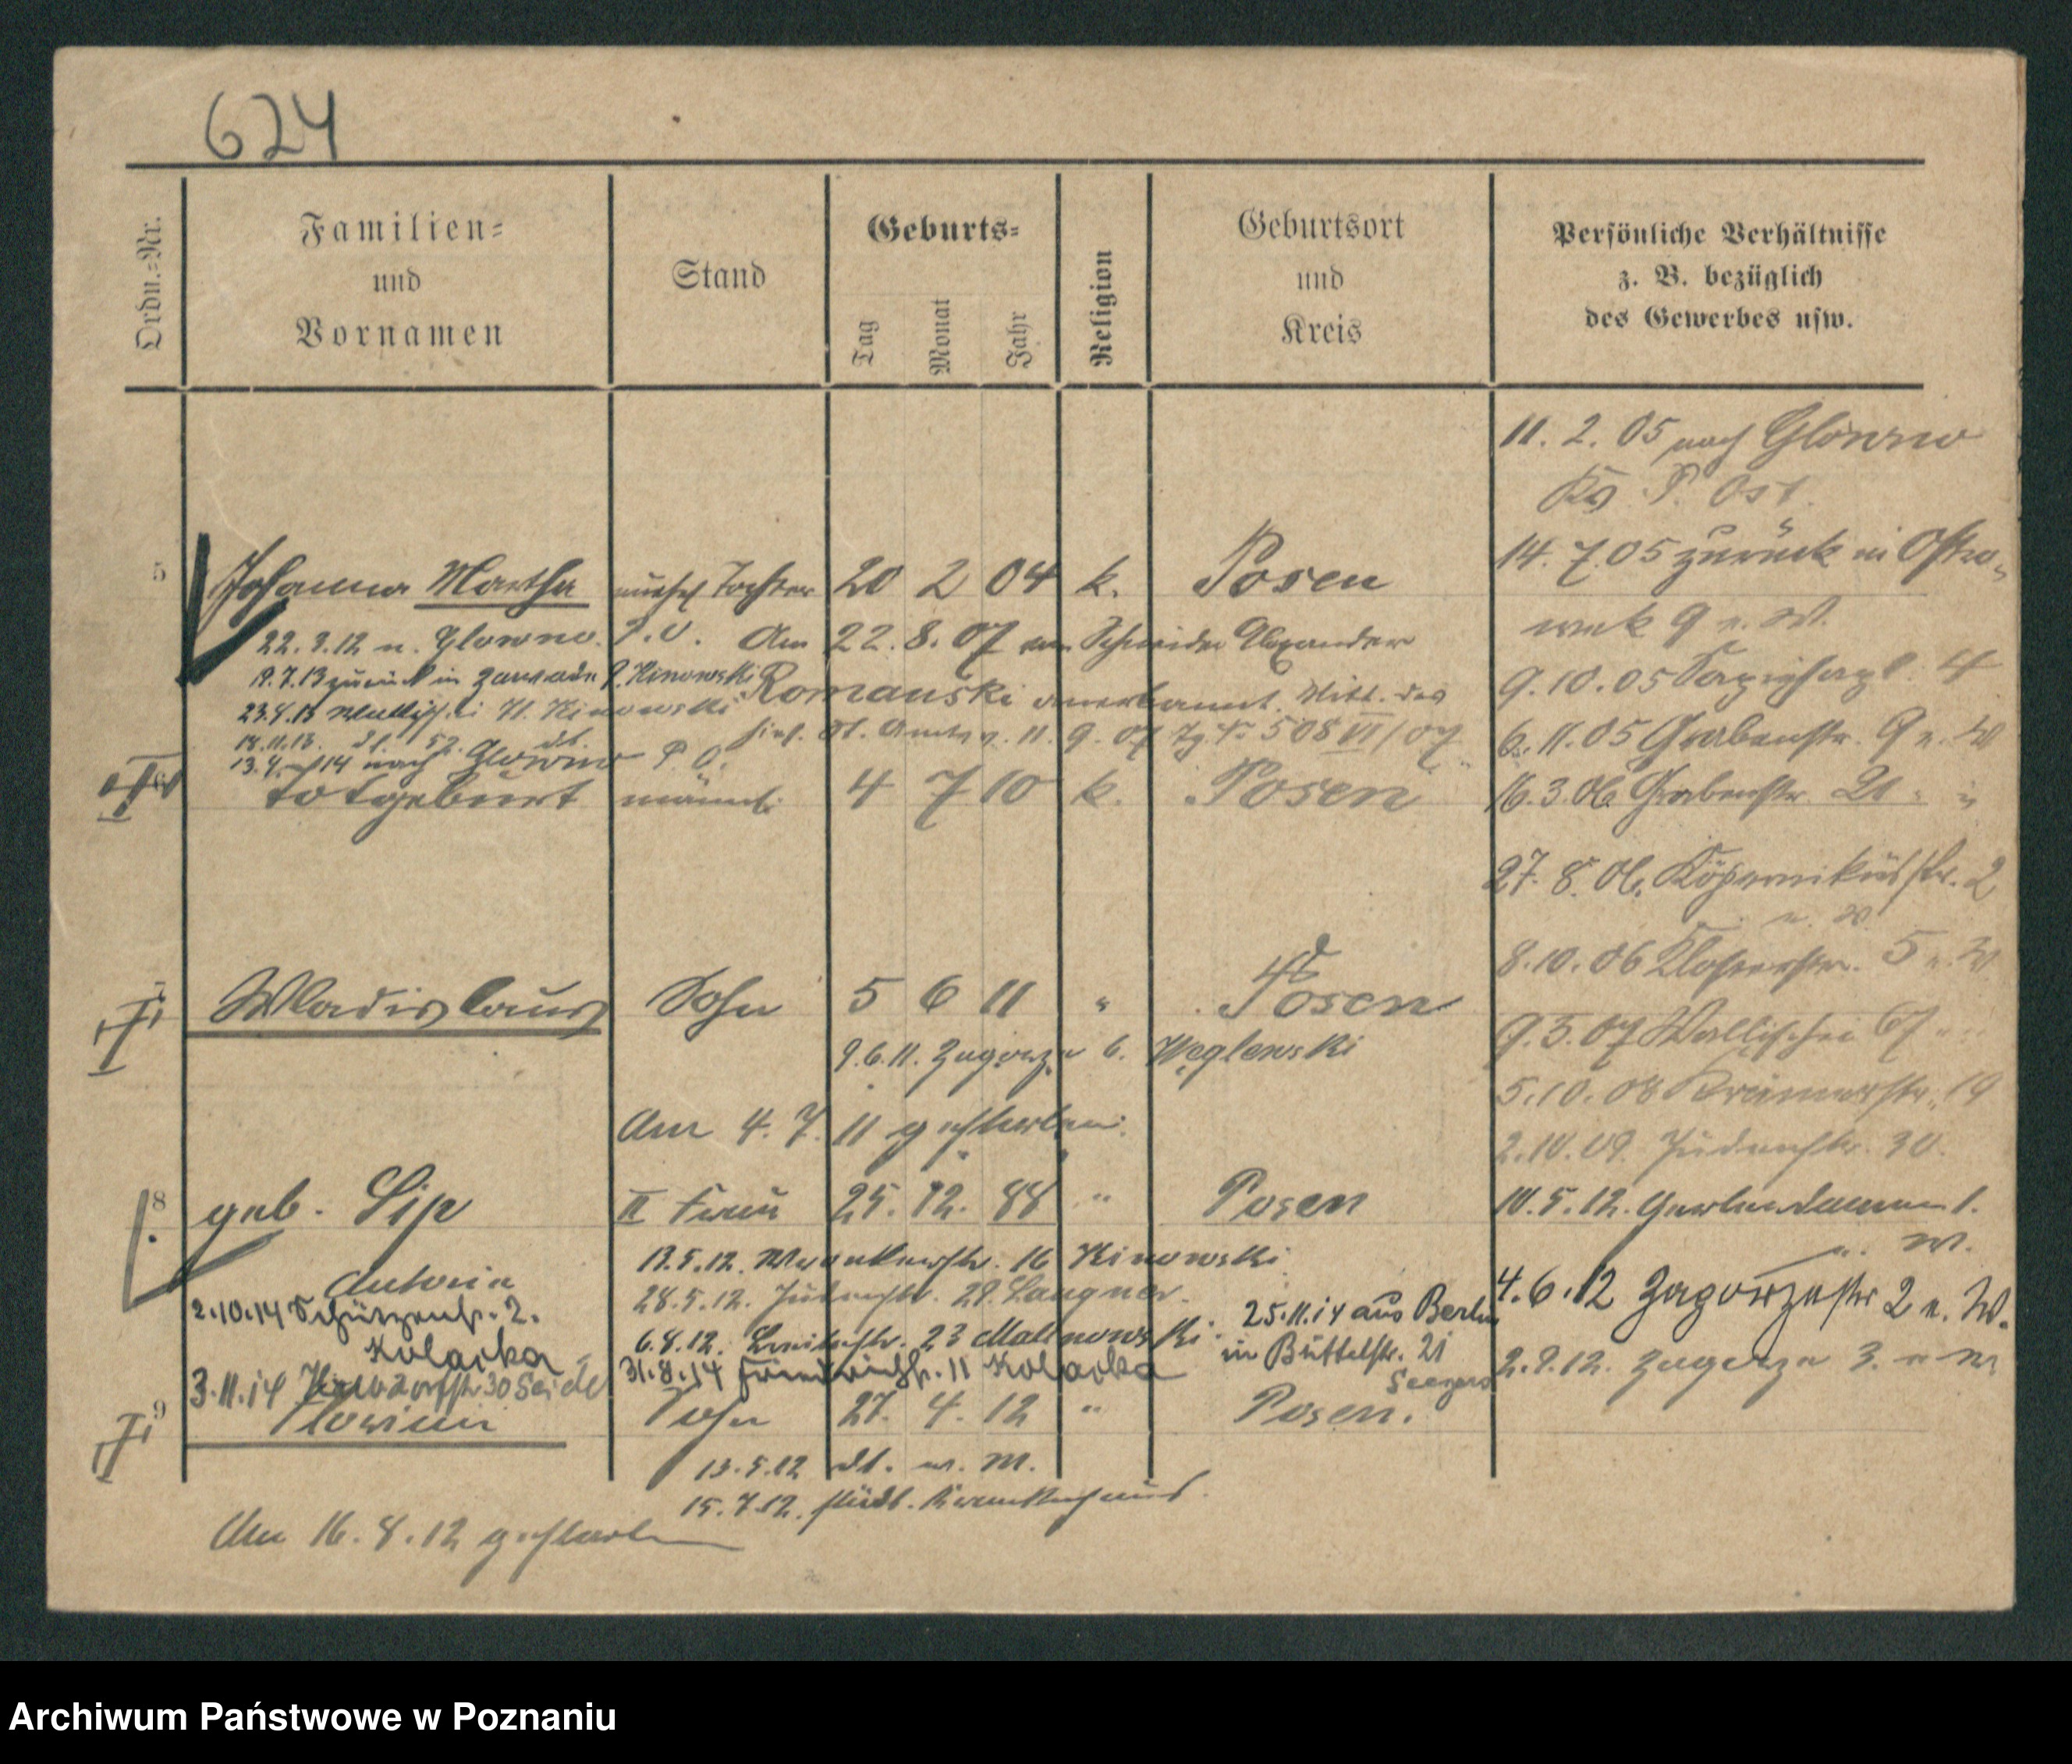 624
Ordn.=Nr.
Familien=
und
Vornamen
Stand
Geburts=
Tag
Monat
Jahr
Religion
Geburtsort
und
Kreis
Persönliche Verhältnisse
z. B. bezüglich
des Gewerbes usw.
11. 2. 05 nach Glowno
P. Ost.
14. 7. 05 zurück in Ostro-
wek 9 n. W.
9. 10. 05 4
6. 11. 05 Grabenstr. 9 n. W
16. 3. 06 Grabenstr. 21
27. 8. 06. Kopernikusstr. 2
n. W.
8. 10. 06 Klosterstr. 5 n. W
9. 3. 07 Wallischei 67
5. 10. 08 Krämerstr. 19
2. 10. 09. Judenstr. 30.
10. 5. 12. Gerberdamm 1.
n. W.
4. 6. 12 Zagorzestr 2 n. W.
2. 9. 12. Zagorze 3. n W
5 Johanna Martha unehel Tochter 20 2 04 k. Posen
22. 3. 12 n. Glowno. P. O. Am 22. 8. 07 vom Schneider Alexander
9. 7. 13 zurück in Zawade 9. Kinowski Romanski anerkannt. Mitt. des
23. 8. 13 Wallisch. Kinowski 11. 9. 07 508 VI/07
18. 11. 13. dt. 52. dt.
13. 4. 14 nach Glowno P. O.
totgeburt männl. 4 7 10 k. Posen
7 Wladislaus Sohn 5 6 11 " Posen
9. 6. 11. Zagorze 6. Węglewski
Am 4. 7. 11 gestorben.
8 geb. Lip II Frau 25. 12. 88 " Posen
Antonie
13. 5. 12. 16 Kinowski
28. 5. 12. Judenstr. 29. Langner.
2. 10. 14 Schützenstr. 2.
Kolacka
6. 8. 12. 23 Malinowski.
25. 11. 14 aus Berlin
in Büttelstr. 21
Seegers
31. 8. 14 Friedrichstr. 11 Kolacka
3. 11. 14 30 Seidel
9 Florian Sohn 27. 4. 12 " Posen.
13. 5. 12 dt. w. M.
15. 7. 12. städt. Krankenhaus.
Am 16. 8. 12 gestorben
Archiwum Państwowe w Poznaniu